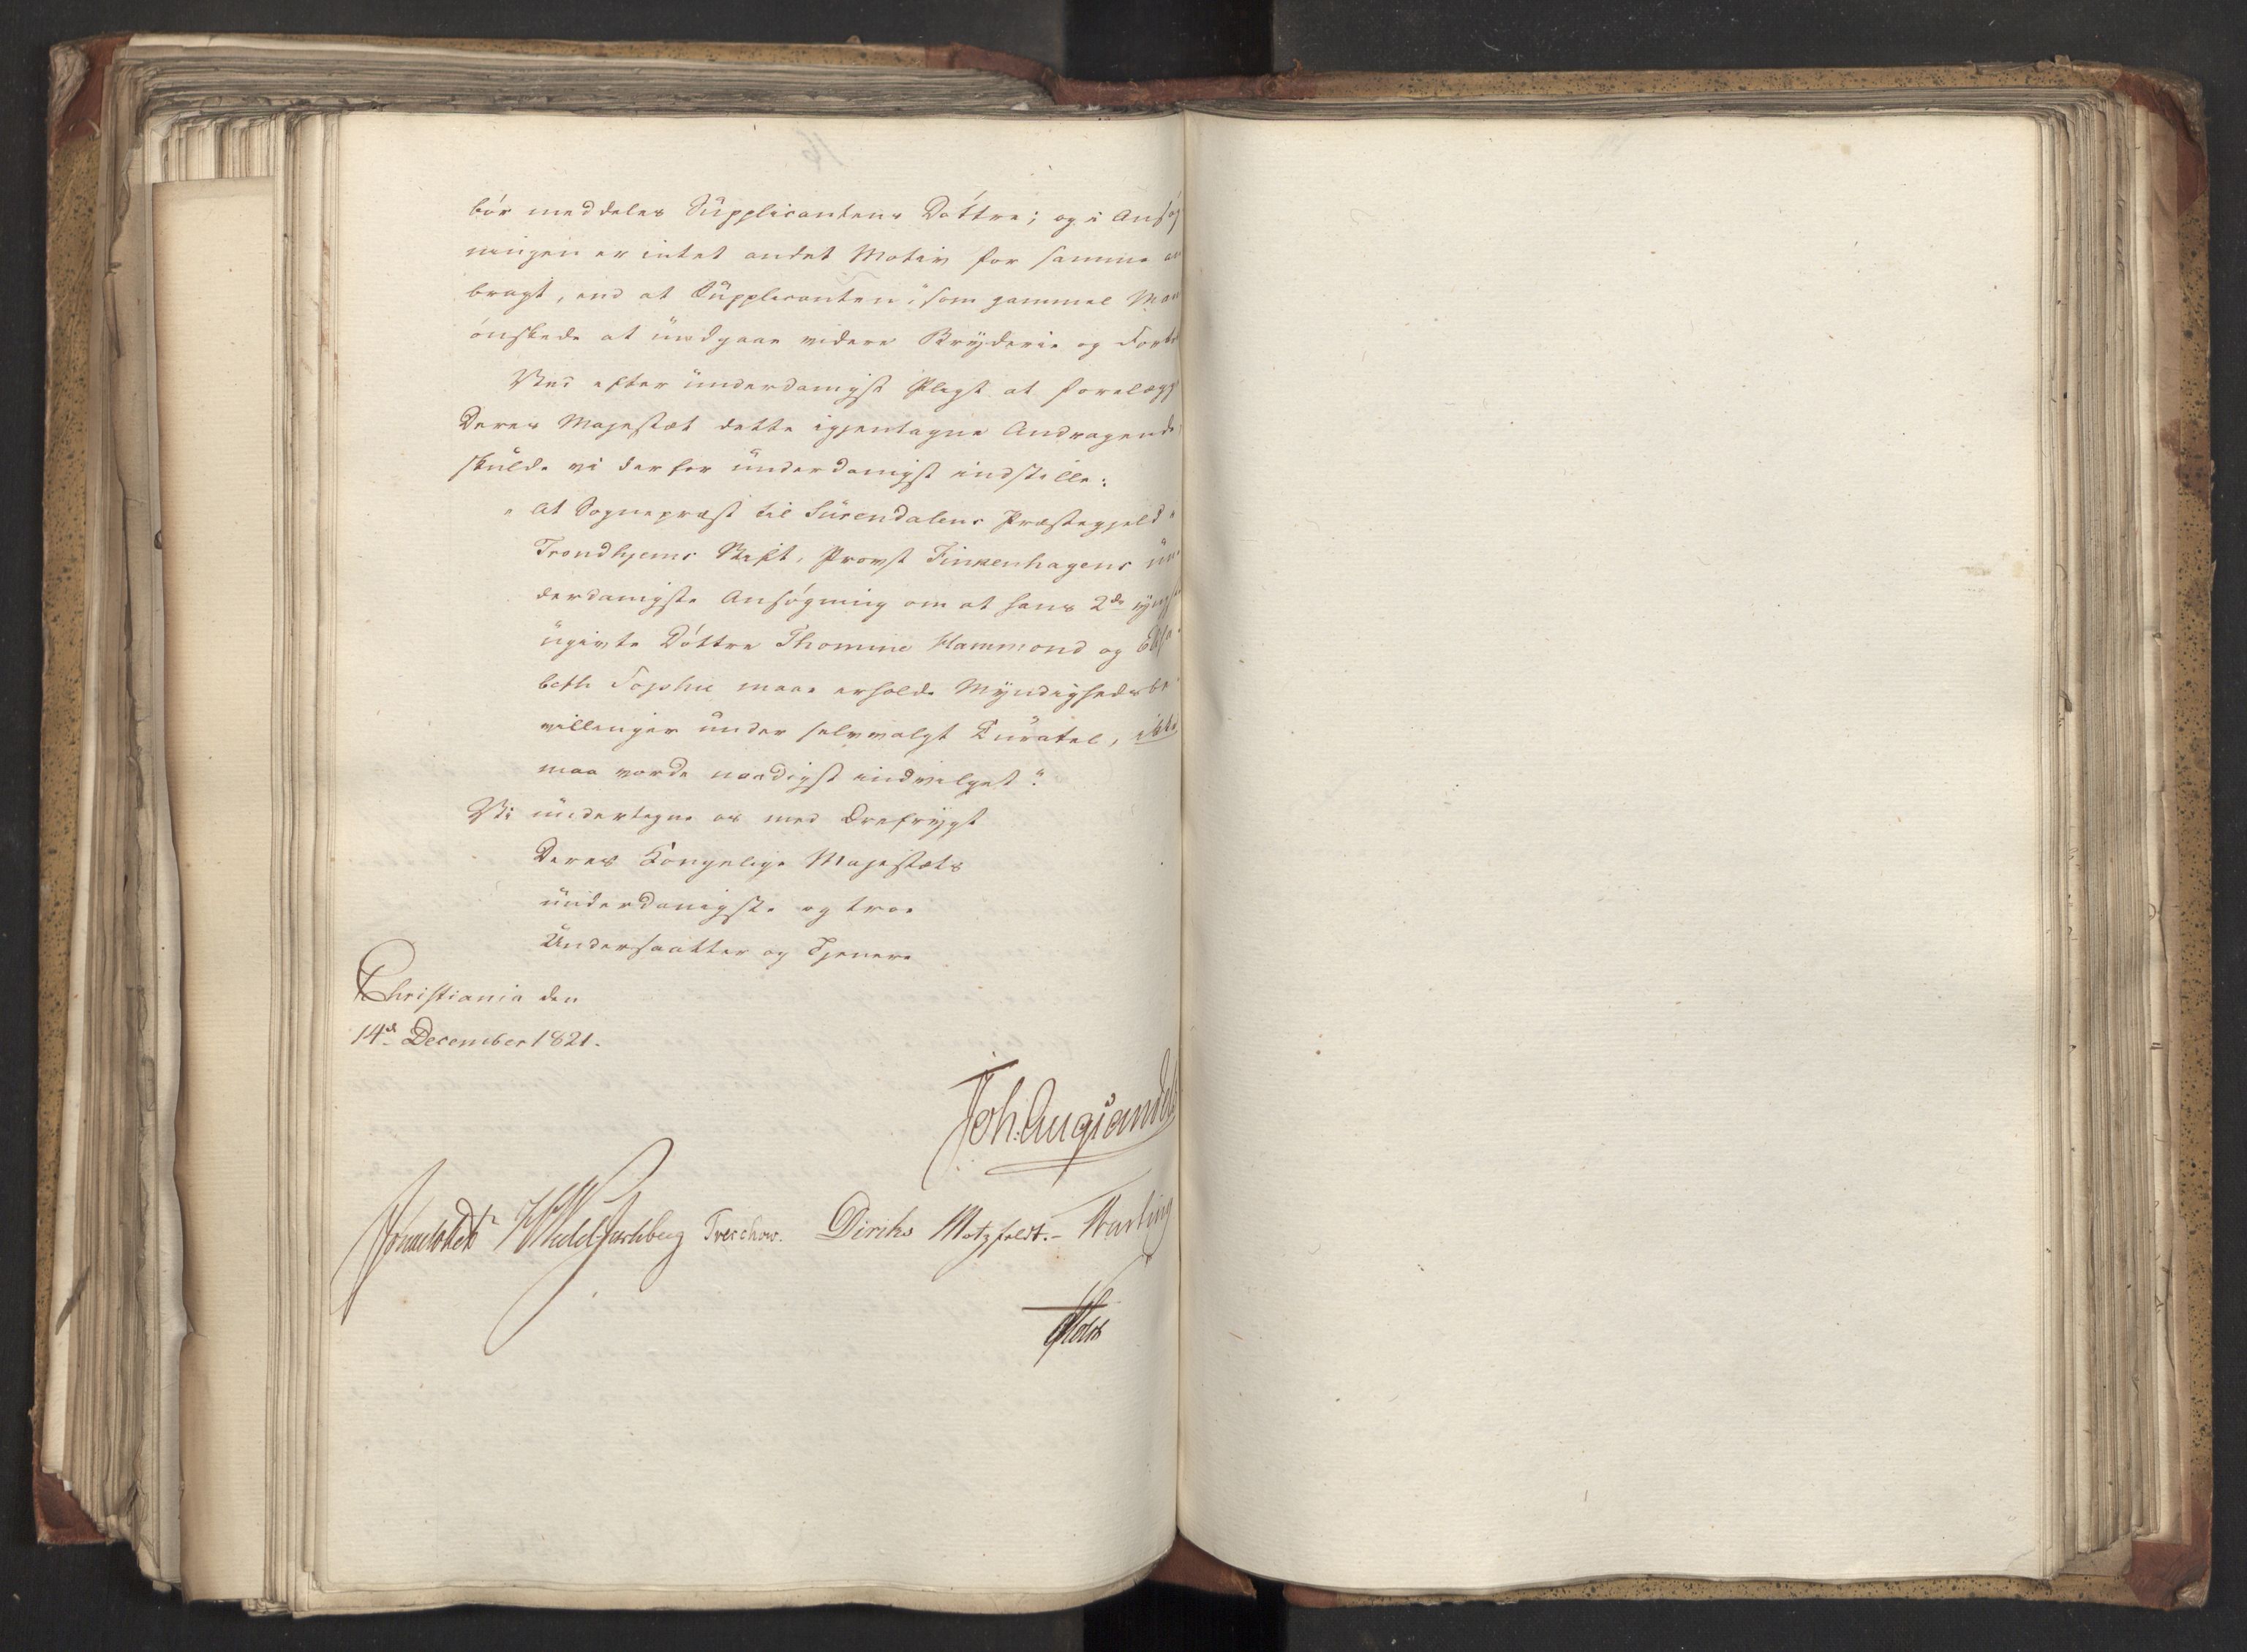 bør meddeles Supplicantens Døttre; og i Ansøg
ningen er intet andet Motiv for samme an
bragt, end at Supplicanten, "som gammel Man
ønskede at undgaae videre Bryderie og
Ved efter underdanigst Pligt at forelægge
Deres Majestæt dette igjentagne Andragende
skulde vi derfor underdanigst indstille:
"At Sognepræst til Surendalens Præstegjeld i
Trondhjems Stift, Provst Finkenhagens un
derdanigste Ansøgning om at hans 2de yngste
ugivte Døttre Thomine Hammond og Elisa
beth Sophie maae erholde Myndighedsbe
villinger under selvvalgt Curatel, ikke
maa vorde naadigst indvilget".
Vi undertegne os med Ærefrygt
Deres Kongelige Majestæts
underdanigste og troe
Undersaatter og Tjenere
Christiania den
14d December 1821.
Joh: Aug: Sandels
Sommerhielm HWedel Jarlsberg Treschow. Diriks Motzfeldt.- Fasting
Holst